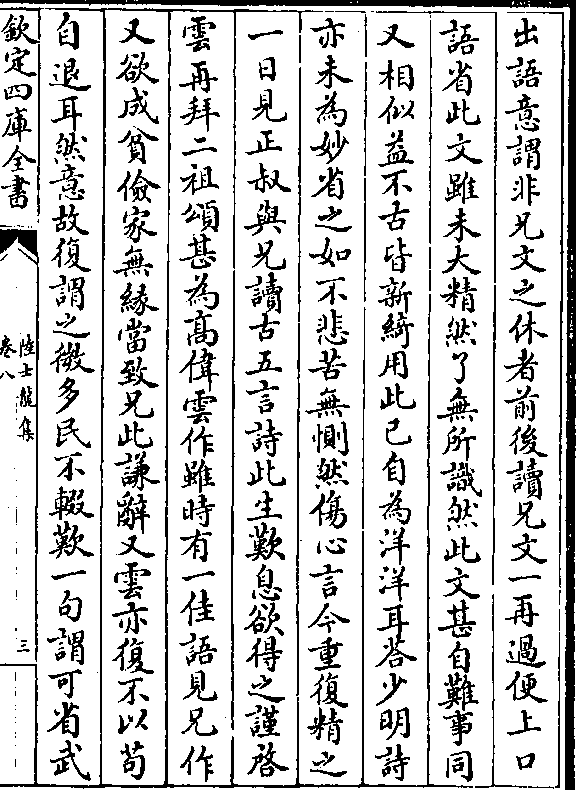 出語意謂非兄文之休者前後讀兄文一再過便上口
語省此文雖未大精然了無所識然此文甚自難事同
又相似益不古皆新綺用此已自為洋洋耳答少明詩
亦未為妙省之如不悲苦無惻然傷心言今重復精之
一日見正叔與兄讀古五言詩此生歎息欲得之謹啓
雲再拜二祖頌甚為高偉雲作雖時有一佳語見兄作
又欲成貧儉家無緣當致兄此謙辭又雲亦復不以苟
自退耳然意故復謂之微多民不輟歎一句謂可省武
欽定四庫全書
陸士龍集
卷八
三